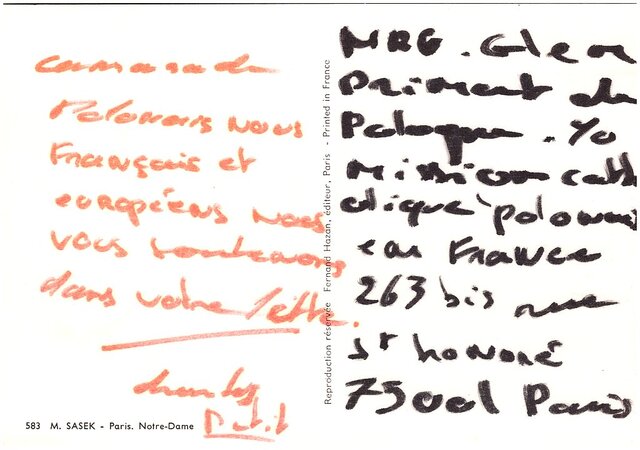 camarade
Polonais nous
Français et
européens nous
vous soutenons
dans votre lutte.
charles
583 M. SASEK - Paris. Notre-Dame
Reproduction réservée Fernand Hazan, éditeur, Paris - Printed in France
MRG.
Primat de
Pologne. 
Mission cath
olique polonaise
en France
263 bis rue
St honoré
75001 Paris